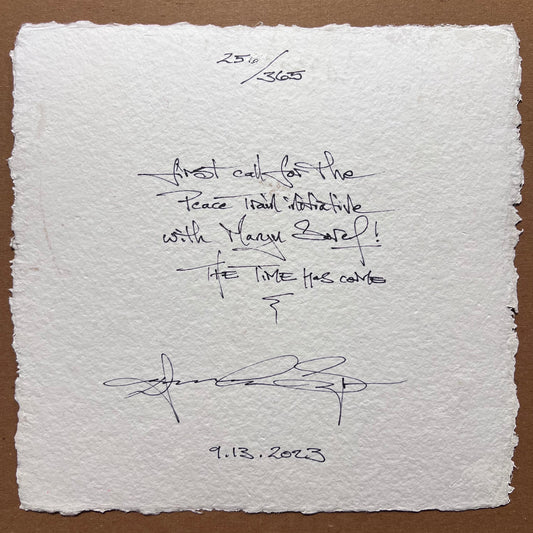 256/365
first call for the
Peace initiative
with !
THE TIME HAS COME
9.13.2023